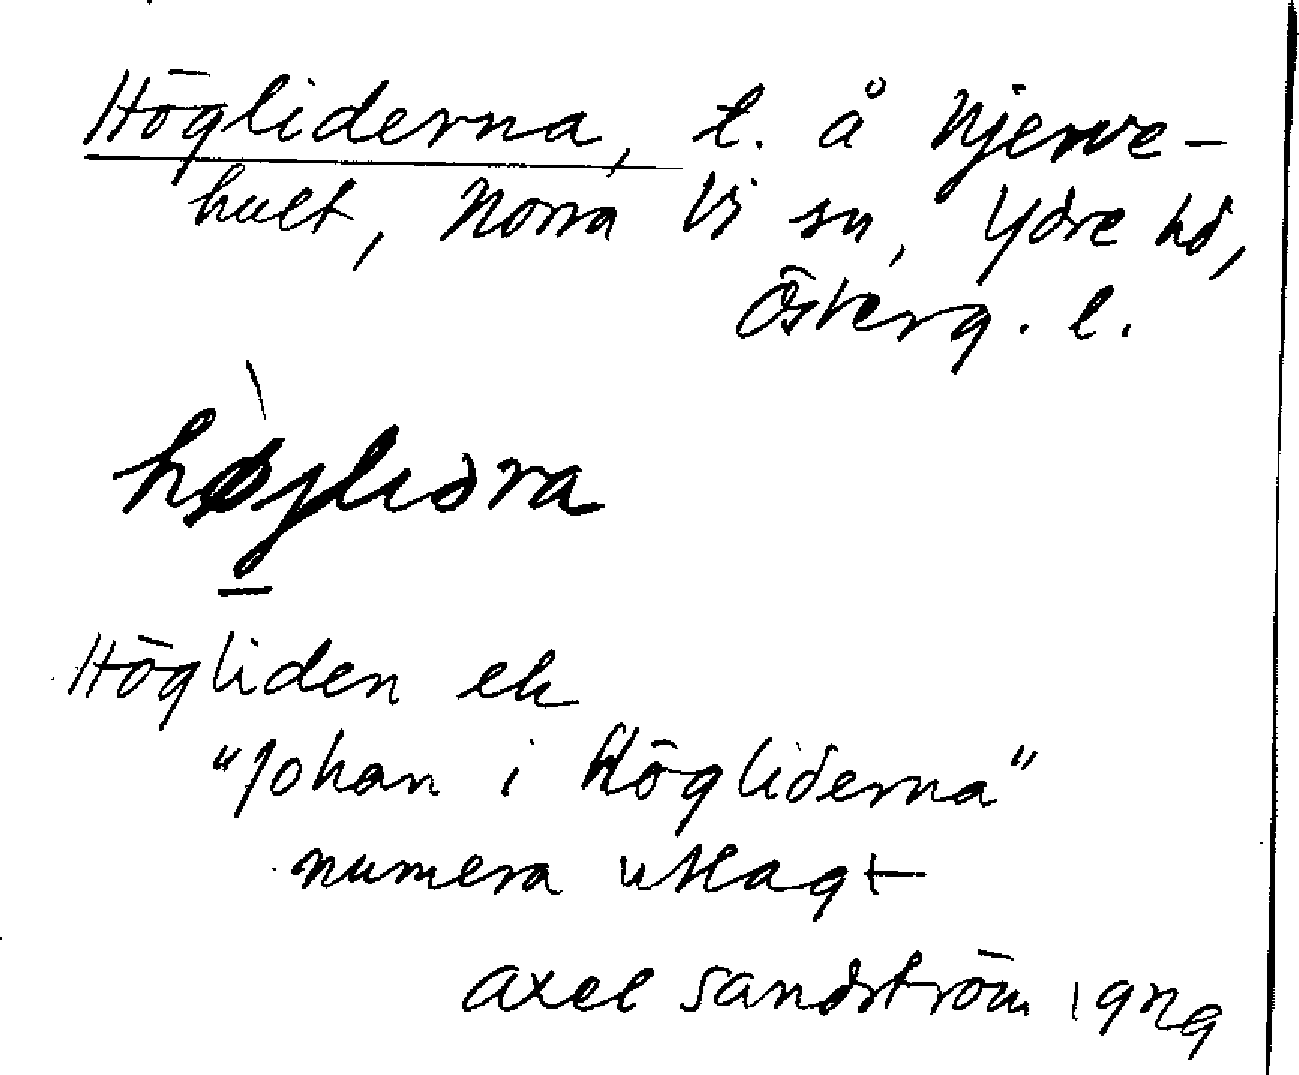 Högliderna, t. å Njerve-
hult, Norra Vi sn, Ydre hd,
Österg. l.
høglidra
Högliden el
"Johan i Högliderna"
numera utlagt
Axel Sandström 1929